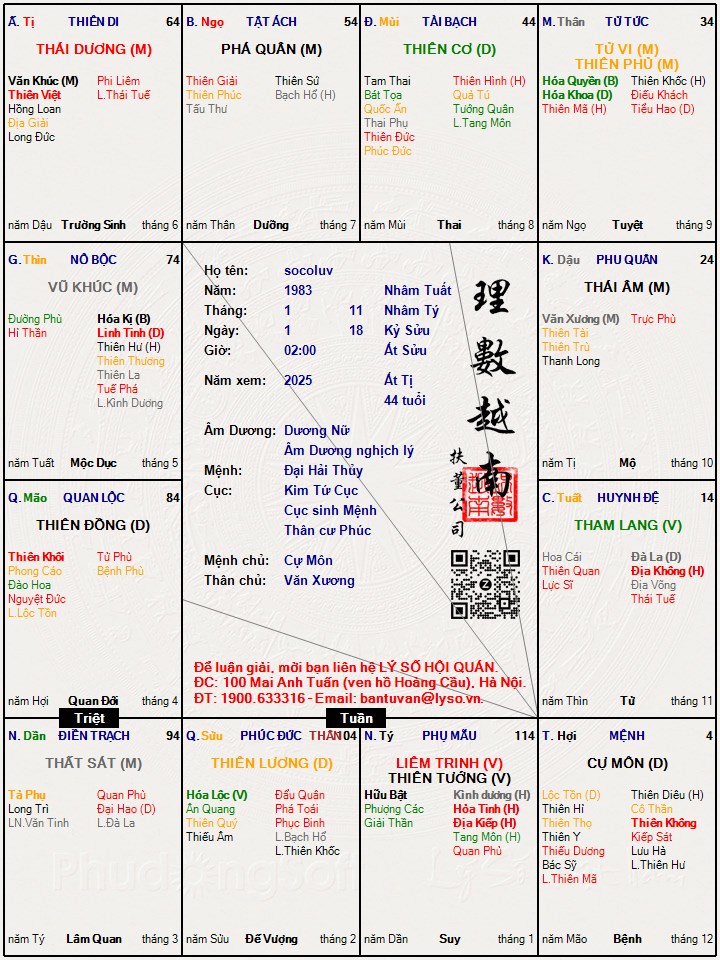 Ã. Tị THIÊN DI 64
THÁI DƯƠNG (M)
Văn Khúc (M) Phi Liêm
Thiên Việt L.Thái Tuế
Hồng Loan
Địa Giải
Long Đức
năm Dậu Trường Sinh tháng 6
B. Ngọ TẬT ÁCH 54
PHÁ QUÂN (M)
Thiên Giải Thiên Sứ
Thiên Phúc Bạch Hổ (H)
Tấu Thư
năm Thân Dưỡng tháng 7
Đ. Mùi TÀI BẠCH 44
THIÊN CƠ (D)
Tam Thai Thiên Hình (H)
Bát Tọa Quả Tú
Quốc Ấn Tướng Quân
Thai Phụ L.Tang Môn
Thiên Đức
Phúc Đức
năm Mùi Thai tháng 8
M. Thân TỬ TỨC 34
TỬ VI (M)
THIÊN PHỦ (M)
Hóa Quyền (B) Thiên Khốc (H)
Hóa Khoa (D) Điếu Khách
Thiên Mã (H) Tiểu Hao (D)
năm Ngọ Tuyệt tháng 9
G. Thìn NÔ BỘC 74
VŨ KHÚC (M)
Đường Phù Hóa Kị (B)
Hỉ Thần Linh Tinh (D)
Thiên Hư (H)
Thiên Thương
Thiên La
Tuế Phá
L.Kình Dương
năm Tuất Mộc Dục tháng 5
Họ tên: socoluv
Năm: 1983 Nhâm Tuất
Tháng: 1 11 Nhâm Tý
Ngày: 1 18 Kỷ Sửu
Giờ: 02:00 Ất Sửu
Năm xem: 2025 Ất Tị
44 tuổi
Âm Dương: Dương Nữ
Âm Dương nghịch lý
Mệnh: Đại Hải Thủy
Cục: Kim Tứ Cục
Cục sinh Mệnh
Thân cư Phúc
Mệnh chủ: Cự Môn
Thân chủ: Văn Xương
理數越南
扶董公司
Để luận giải, mời bạn liên hệ LÝ SỐ HỘI QUÁN.
ĐC: 100 Mai Anh Tuấn (ven hồ Hoàng Cầu), Hà Nội.
ĐT: 1900.633316 - Email: bantuvan@lyso.vn.
K. Dậu PHU QUÂN 24
THÁI ÂM (M)
Văn Xương (M) Trực Phù
Thiên Tài
Thiên Trù
Thanh Long
năm Tị Mộ tháng 10
Q. Mão QUAN LỘC 84
THIÊN ĐỒNG (D)
Thiên Khôi Tử Phù
Phong Cáo Bệnh Phù
Đào Hoa
Nguyệt Đức
L.Lộc Tồn
năm Hợi Quan Đới tháng 4
C. Tuất HUYNH ĐỆ 14
THAM LANG (V)
Hoa Cái Đà La (D)
Thiên Quan Địa Không (H)
Lực Sĩ Địa Võng
Thái Tuế
năm Thìn Tử tháng 11
Triệt
Tuần
N. Dần ĐIỀN TRẠCH 94
THẤT SÁT (M)
Tả Phụ Quan Phù
Long Trì Đại Hao (D)
LN.Văn Tinh L.Đà La
năm Tý Lâm Quan tháng 3
Q. Sửu PHÚC ĐỨC THÂN 104
THIÊN LƯƠNG (D)
Hóa Lộc (V) Đẩu Quân
Ân Quang Phá Toái
Thiên Quý Phục Binh
Thiếu Âm L.Bạch Hổ
L.Thiên Khốc
năm Sửu Đế Vượng tháng 2
N. Tý PHỤ MẪU 114
LIÊM TRINH (V)
THIÊN TƯỚNG (V)
Hữu Bật Kình dương (H)
Phượng Các Hỏa Tinh (H)
Giải Thần Địa Kiếp (H)
Tang Môn (H)
Quan Phủ
năm Dần Suy tháng 1
T. Hợi MỆNH 4
CỰ MÔN (D)
Lộc Tồn (D) Thiên Diêu (H)
Thiên Hỉ Cô Thần
Thiên Thọ Thiên Không
Thiên Y Kiếp Sát
Thiếu Dương Lưu Hà
Bác Sỹ L.Thiên Hư
L.Thiên Mã
năm Mão Bệnh tháng 12